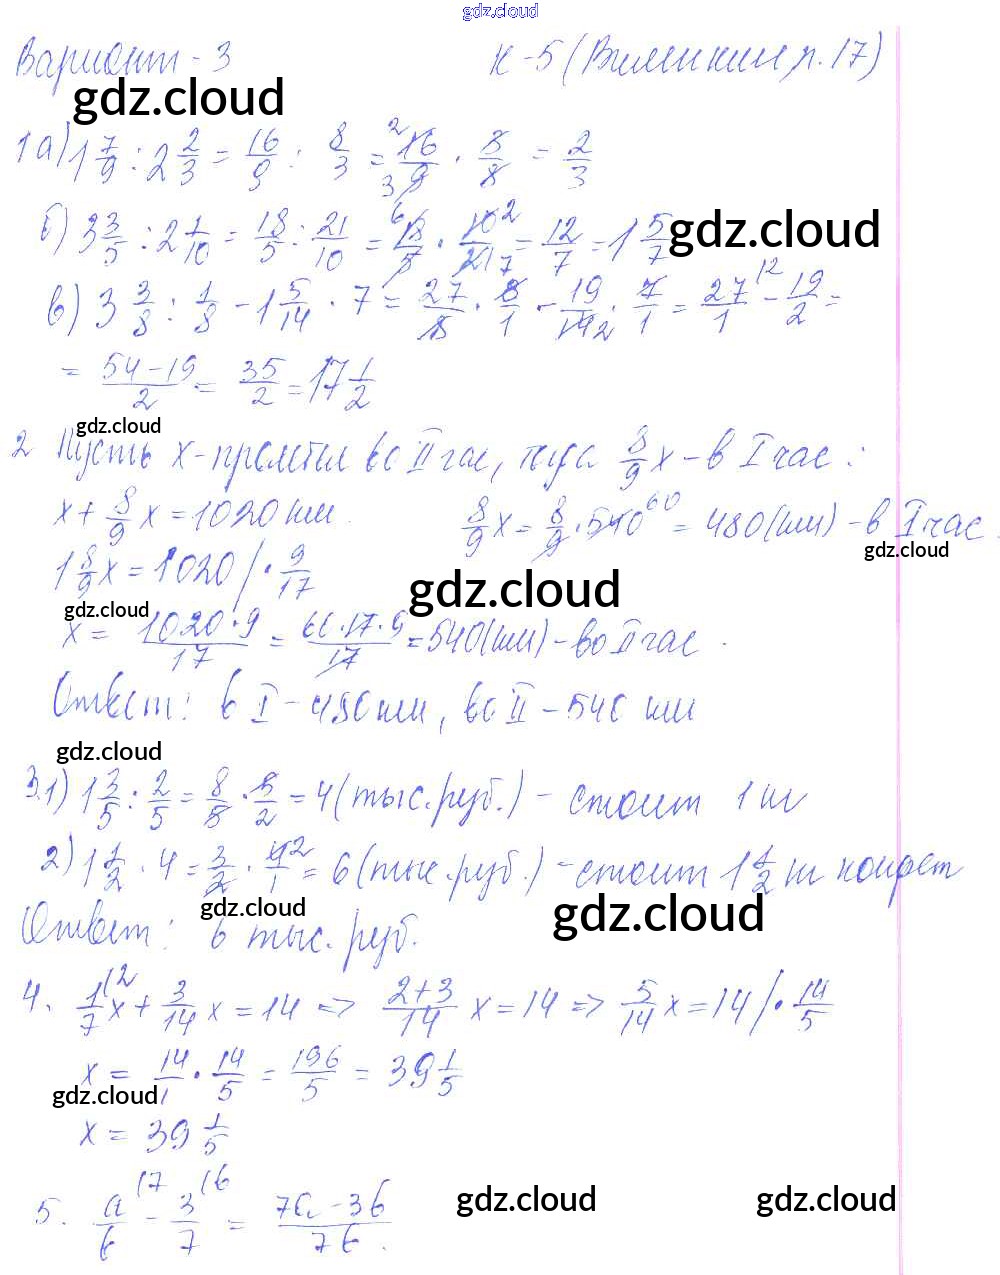 gdz.cloud
Вариант - 3 К-5 (Виленкин п. 17)
gdz.cloud
1 а) 1 7/9 : 2 2/3 = 16/9 : 8/3 = 16/9 · 8/8 = 2/3
б) 3 3/5 : 2 1/10 = 18/5 : 21/10 = 18/5 · 10/21 = 12/7 = 1 5/7
gdz.cloud
в) 3 3/8 : 1/8 - 1 5/14 · 7 = 27/8 · 8/1 - 19/14 · 7/1 = 27/1 - 19/2 =
= (54 - 19)/2 = 35/2 = 17 1/2
gdz.cloud
2 Пусть x - пролетел во II час, тогда 8/9 x - в I час :
x + 8/9 x = 1020 км. 8/9 x = 8/9 · 540 = 480 (км) - в I час.
gdz.cloud
1 8/9 x = 1020 / · 9/17
gdz.cloud
gdz.cloud
x = (1020 · 9)/17 = (60 · 17 · 9)/17 = 540 (км) - во II час.
Ответ: в I - 480 км, во II - 540 км
gdz.cloud
3. 1) 1 3/5 : 2/5 = 8/5 · 5/2 = 4 (тыс. руб.) - стоит 1 кг
2) 1 1/2 · 4 = 3/2 · 4/1 = 6 (тыс. руб.) - стоит 1 1/2 кг конфет
gdz.cloud
gdz.cloud
Ответ: 6 тыс. руб.
4. 1/7 x + 3/14 x = 14 => (2+3)/14 x = 14 => 5/14 x = 14 / · 14/5
x = 14/1 · 14/5 = 196/5 = 39 1/5
gdz.cloud
x = 39 1/5
5. a/b - 3/7 = (7a - 3b)/7b.
gdz.cloud
gdz.cloud